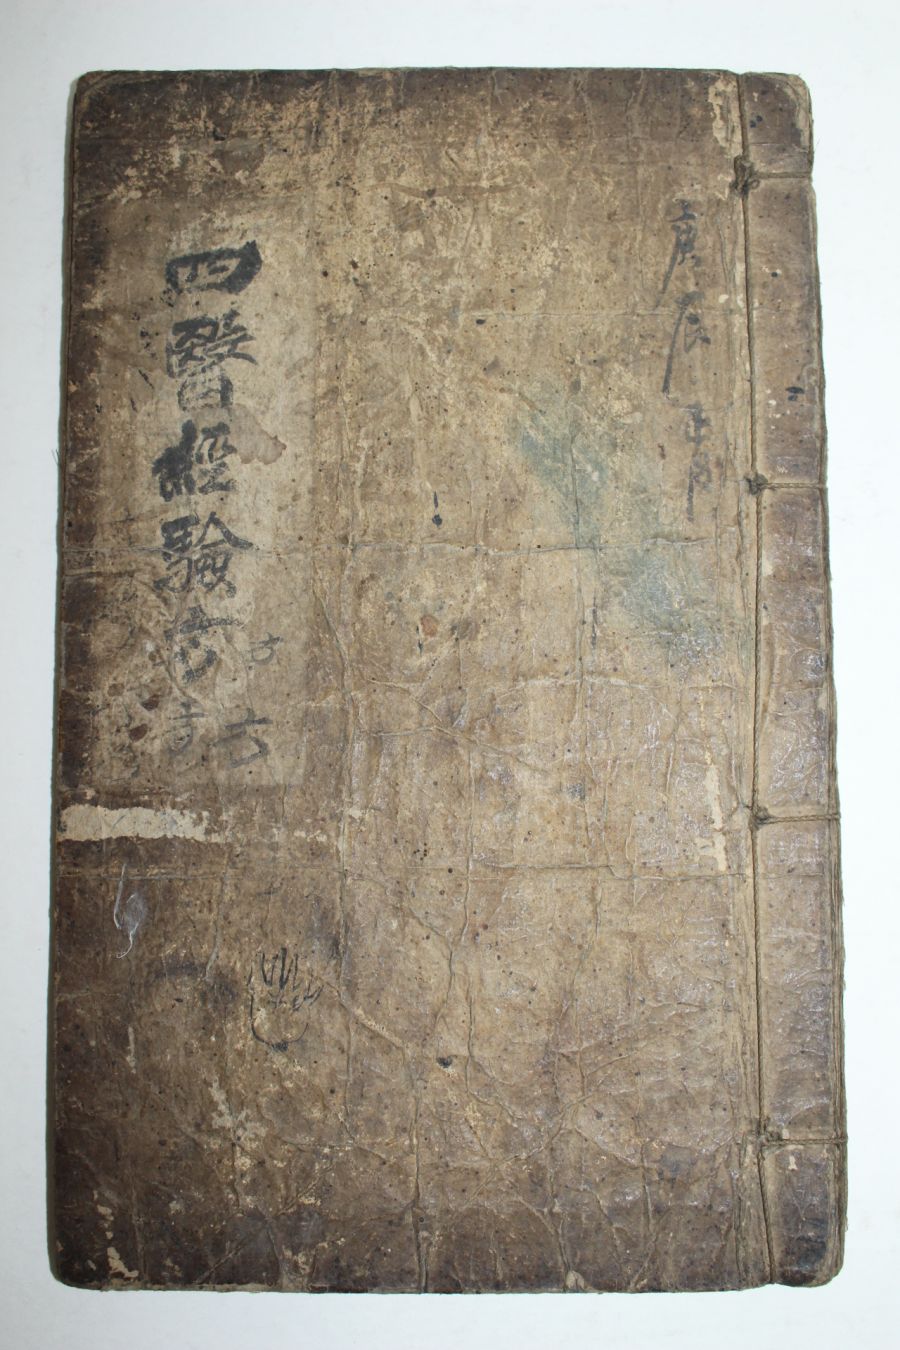 庚辰 正月
四醫經驗方